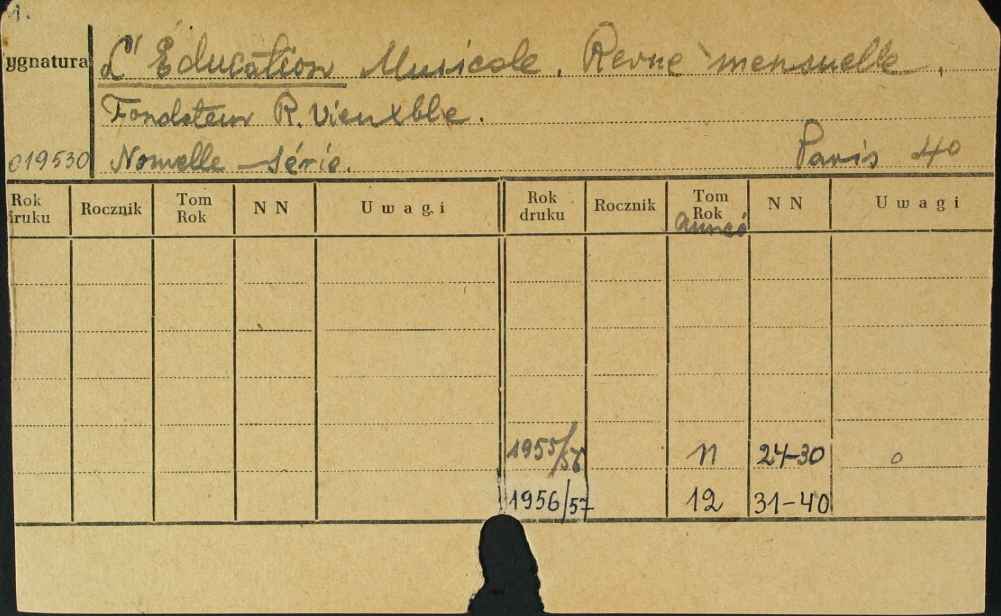 1.
ygnatura L'Éducation Musicale. Revue mensuelle.
Fondateur R. Vieuxblé.
019530 Nouvelle série. Paris 4º
Rok druku Rocznik Tom Rok NN Uwagi Rok druku Rocznik Tom Rok année NN Uwagi
1955/56 11 24-30 o
1956/57 12 31-40